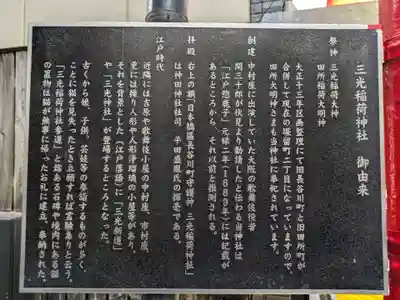 三光稲荷神社 御由来
祭神 三光稲荷大神
田所稲荷大明神
大正十三年区画整理にて旧長谷川町と旧田所町が
合併して現在の堀留町二丁目になっていますので、
田所大明神さまも当神社に奉祀されています。
創建 中村座に出演していた大阪の歌舞伎役者
関三十郎が伏見より勧請したと伝わる当神社は
「江戸惣鹿子」元禄二年(1689年)には記載が
あるところから、それ以前と推測される。
拝殿 右上の額「日本橋区長谷川町守護神 三光稲荷神社」
は神田神社社司、平田盛胤氏の揮毫である。
江戸時代
近隣には吉原や歌舞伎小屋の中村座、市村座、
更には操り人形や人形浄瑠璃の小屋等があり、
それを背景とした「江戸落語」に「三光新道」
や「三光神社」が登場するところとなった。
古くから娘、子供、芸妓等の参詣するものが多く、
ことに猫を見失ったとき立願すれば霊験ありと云う。
「三光稲荷神社参道」と銘ある石碑や境内にある猫
の置物は猫が無事に帰ったお礼に建立、奉納された。